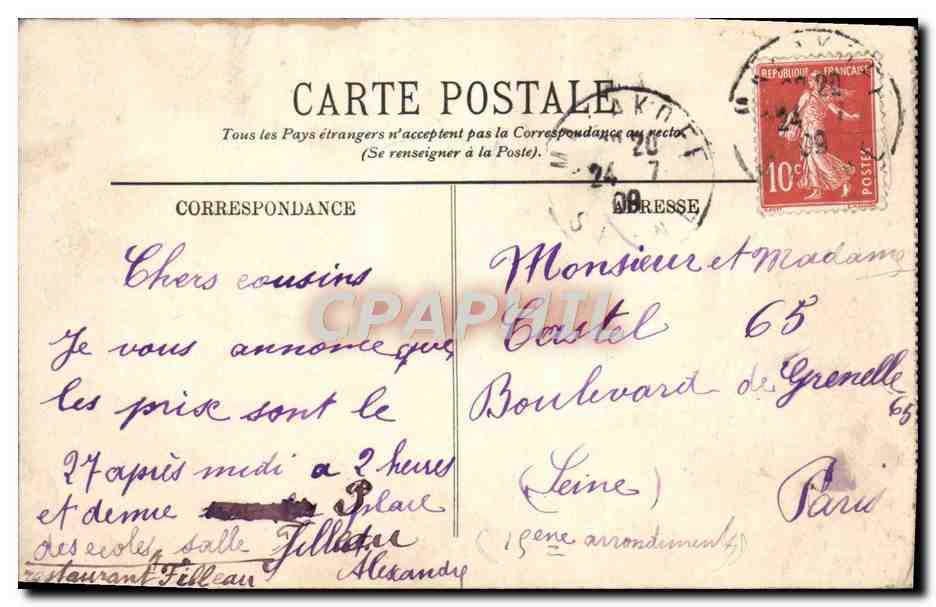 CARTE POSTALE
Tous les Pays étrangers n'acceptent pas la Correspondance au recto.
(Se renseigner à la Poste).
RÉPUBLIQUE FRANÇAISE
10c
POSTES
20
24 7
09
20
24 7
09
CORRESPONDANCE
Chers cousins
Je vous annonce que
les prix sont le
27 après midi a 2 heures
et demie Place
des ecoles salle Filleau
restaurant Filleau Alexandre
ADRESSE
Monsieur et Madame
Castel 65
Boulevard de Grenelle
65
(Seine) Paris
(15ene arrondiments)
CPAPHIL